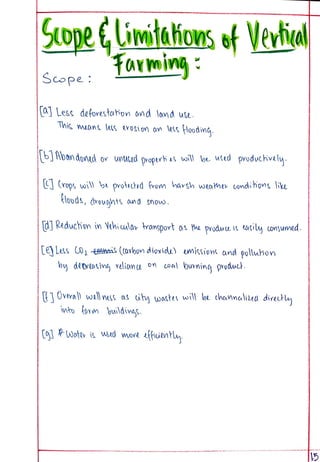 Scope & Limitations of Vertical
Farming :
Scope :
[a] Less deforestation and land use.
This means less erosion an less flooding.
[b] Abandoned or unused properties will be used productively.
[c] Crops will be protected from harsh weather conditions like
floods, droughts and snow.
[d] Reduction in Vehicular transport as the produce is easily consumed.
[e] Less CO2 (carbon dioxide) emissions and pollution
by decreasing reliance on coal burning product.
[f] Overall wellness as city wastes will be channalized directly
into farm buildings.
[g] Water is used more efficiently
15